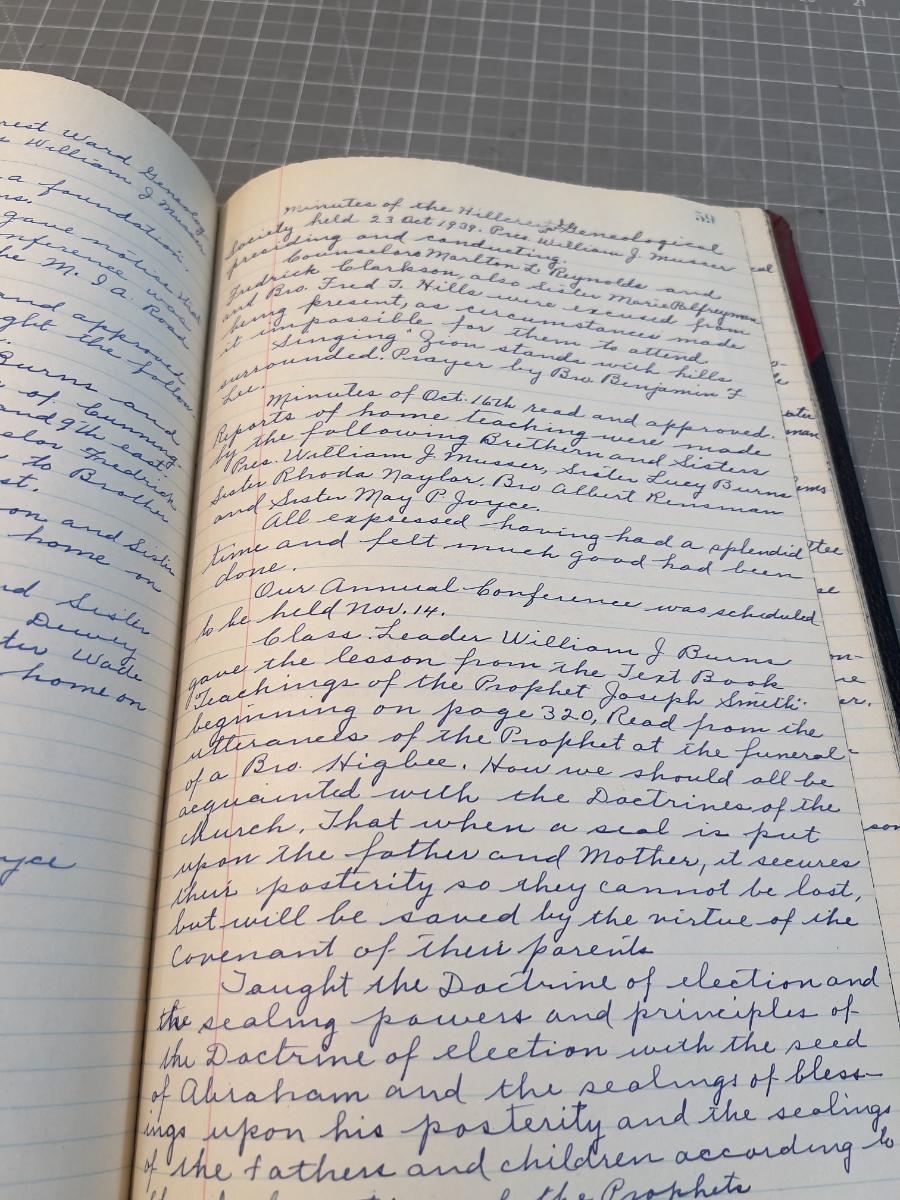 rest Ward Genealogy
s William J Musser
a foundation.
ns.
gave notice that
nference was
he M. I. A. Road
and approved
ght the follow
Burns and
of Cunning
and 9th east
elor Fredrick
to Brother
st.
on and Sister
home on
nd Sister
Dewey
ter Wade
home on
yce
59
Minutes of the Hillcrest Genealogical
Society held 23 Oct 1939. Pres. William J. Musser
presiding and conducting.
Counselors Marlton L. Reynolds and
Fredrick Clarkson, also Sister Marie Palfreyman
and Bro. Fred T. Hills were excused from
being present, as circumstances made
it impossible for them to attend
Singing "Zion stands with hills
surrounded". Prayer by Bro. Benjamin F.
Lee.
Minutes of Oct. 16th read and approved.
Reports of home teaching were made
by the following Brethern and Sisters
Pres. William J. Musser, Sister Lucy Burns
Sister Rhoda Naylor. Bro Albert Rensman
and Sister May P. Joyce.
All expressed having had a splendid
time and felt much good had been
done.
Our Annual Conference was scheduled
to be held Nov. 14.
Class Leader William J Burns
gave the lesson from the Text Book
Teachings of the Prophet Joseph Smith.
beginning on page 320, Read from the
utterances of the Prophet at the funeral
of a Bro. Higbee. How we should all be
acquainted with the Doctrines of the
church. That when a seal is put
upon the father and Mother, it secures
their posterity so they cannot be lost,
but will be saved by the virtue of the
Covenant of their parents
Taught the Doctrine of election and
the sealing powers and principles of
the Doctrine of election with the seed
of Abraham and the sealings of bless-
ings upon his posterity and the sealings
of the fathers and children according to
the Prophets